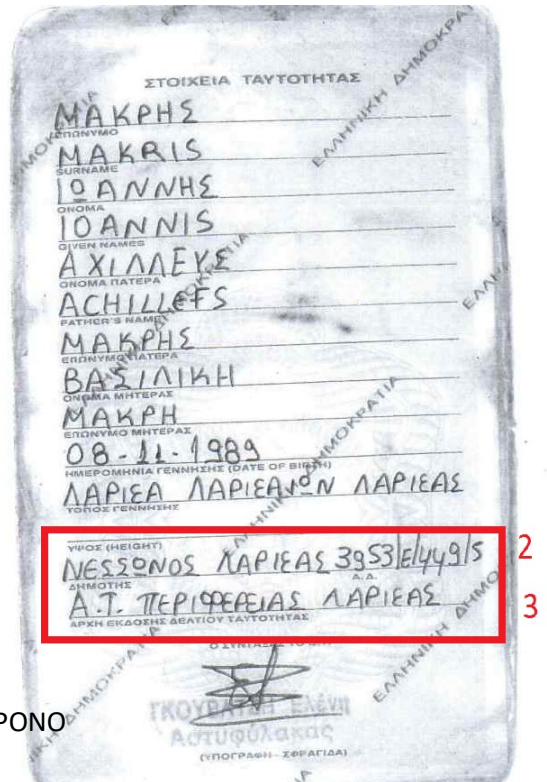 ΣΤΟΙΧΕΙΑ ΤΑΥΤΟΤΗΤΑΣ
ΜΑΚΡΗΣ
ΕΠΩΝΥΜΟ
MAKRIS
SURNAME
ΙΩΑΝΝΗΣ
ΟΝΟΜΑ
IOANNIS
GIVEN NAMES
ΑΧΙΛΛΕΥΣ
ΟΝΟΜΑ ΠΑΤΕΡΑ
ACHILLEFS
FATHER'S NAME
ΜΑΚΡΗΣ
ΕΠΩΝΥΜΟ ΠΑΤΕΡΑ
ΒΑΣΙΛΙΚΗ
ΟΝΟΜΑ ΜΗΤΕΡΑΣ
ΜΑΚΡΗ
ΕΠΩΝΥΜΟ ΜΗΤΕΡΑΣ
08-11-1989
ΗΜΕΡΟΜΗΝΙΑ ΓΕΝΝΗΣΗΣ (DATE OF BIRTH)
ΛΑΡΙΣΑ ΛΑΡΙΣΑΙΩΝ ΛΑΡΙΣΑΣ
ΤΟΠΟΣ ΓΕΝΝΗΣΗΣ
ΥΨΟΣ (HEIGHT) 2
ΝΕΣΣΩΝΟΣ ΛΑΡΙΣΑΣ 3953/Ε/449/5
ΔΗΜΟΤΗΣ Α.Α.
Α.Τ. ΠΕΡΙΦΕΡΕΙΑΣ ΛΑΡΙΣΑΣ 3
ΑΡΧΗ ΕΚΔΟΣΗΣ ΔΕΛΤΙΟΥ ΤΑΥΤΟΤΗΤΑΣ
Ο ΣΥΝΤΑΞΑΣ
Ελένη
ΡΟΝΟ
Αστυφύλακας
(ΥΠΟΓΡΑΦΗ - ΣΦΡΑΓΙΔΑ)
ΕΛΛΗΝΙΚΗ ΔΗΜΟΚΡΑΤΙΑ